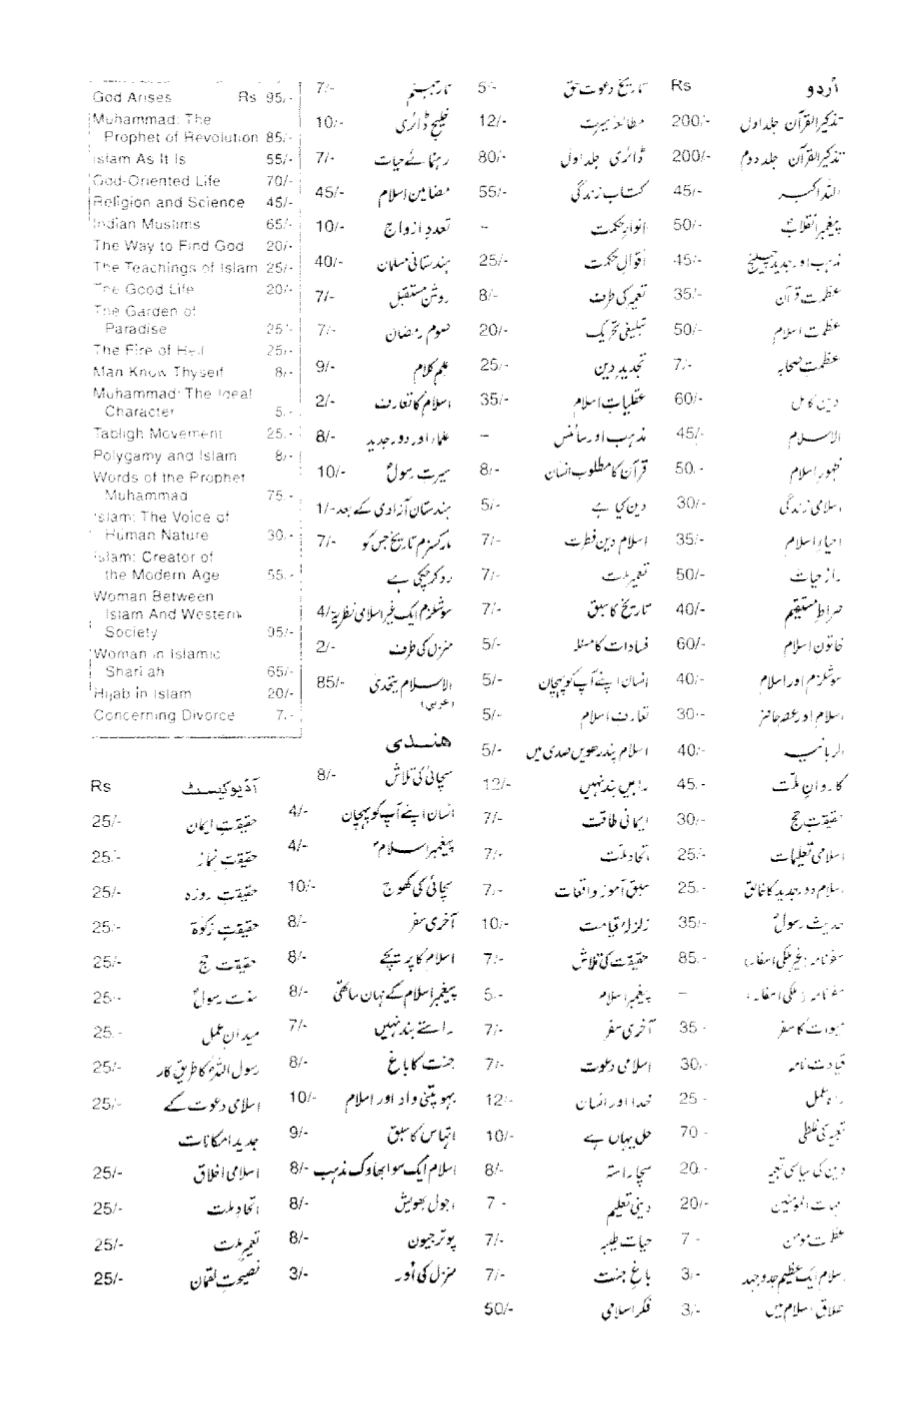 اُردو Rs
تذکیر القرآن جلد اول 200/-
تذکیر القرآن جلد دوم 200/-
اللہ اکبر 45/-
پیغمبر انقلاب 50/-
مذہب اور جدید چیلنج 45/-
عظمت قرآن 35/-
عظمت اسلام 50/-
عظمت صحابہ 7/-
دین کامل 60/-
الاسلام 45/-
ظہور اسلام 50/-
اسلامی زندگی 30/-
احیاء اسلام 35/-
راز حیات 50/-
صراط مستقیم 40/-
خاتون اسلام 60/-
سوشلزم اور اسلام 40/-
اسلام اور عصر حاضر 30/-
الربانیہ 40/-
کاروانِ ملت 45/-
حقیقت حج 30/-
اسلامی تعلیمات 25/-
اسلام دور جدید کا خالق 25/-
حدیث رسولؐ 35/-
سفرنامہ (غیر ملکی اسفار) 85/-
سفرنامہ (ملکی اسفار) –
میوات کا سفر 35/-
قیادت نامہ 30/-
راہ عمل 25/-
تعبیر کی غلطی 70/-
دین کی سیاسی تعبیر 20/-
امہات المؤمنین 20/-
عظمت مومن 7/-
اسلام ایک عظیم جدوجہد 3/-
طلاق اسلام میں 3/-
تاریخ دعوت حق 5/-
مطالعہ سیرت 12/-
ڈائری جلد اول 80/-
کتاب زندگی 55/-
انوار حکمت –
اقوال حکمت 25/-
تعمیر کی طرف 8/-
تبلیغی تحریک 20/-
تجدید دین 25/-
عقلیات اسلام 35/-
مذہب اور سائنس –
قرآن کا مطلوب انسان 8/-
دین کیا ہے 5/-
اسلام دین فطرت 7/-
تعمیر ملت 7/-
تاریخ کا سبق 7/-
فسادات کا مسئلہ 5/-
انسان اپنے آپ کو پہچان 5/-
تعارف اسلام 5/-
اسلام پندرھویں صدی میں 5/-
راہیں بند نہیں 12/-
ایمانی طاقت 7/-
اتحاد ملت 7/-
سبق آموز واقعات 7/-
زلزلۂ قیامت 10/-
حقیقت کی تلاش 7/-
پیغمبر اسلام 5/-
آخری سفر 7/-
اسلامی دعوت 7/-
خدا اور انسان 12/-
حل یہاں ہے 10/-
سچا راستہ 8/-
دینی تعلیم 7/-
حیات طیبہ 7/-
باغ جنت 7/-
فکر اسلامی 50/-
نار جہنم 7/-
خلیج ڈائری 10/-
رہنمائے حیات 7/-
مضامین اسلام 45/-
تعدد ازواج 10/-
ہندستانی مسلمان 40/-
روشن مستقبل 7/-
صوم رمضان 7/-
علم کلام 9/-
اسلام کا تعارف 2/-
علماء اور دور جدید 8/-
سیرت رسولؐ 10/-
ہندستان آزادی کے بعد 1/-
مارکسزم تاریخ جس کو 7/-
رد کر چکی ہے
سوشلزم ایک غیر اسلامی نظریہ 4/-
منزل کی طرف 2/-
الاسلام یتحدی 85/-
(عربی)
ھنــدی
سچائی کی تلاش 8/-
انسان اپنے آپ کو پہچان 4/-
پیغمبر اسلام 4/-
سچائی کی کھوج 10/-
آخری سفر 8/-
اسلام کا پریچے 8/-
پیغمبر اسلام کے مہان ساتھی 8/-
راستے بند نہیں 7/-
جنت کا باغ 8/-
بہو پتنی واد اور اسلام 10/-
اتہاس کا سبق 9/-
اسلام ایک سوابھاوک مذہب 8/-
اجول بھویش 8/-
پوتر جیون 8/-
منزل کی اور 3/-
God Arises Rs 95/-
Muhammad: The
Prophet of Revolution 85/-
Islam As It Is 55/-
God-Oriented Life 70/-
Religion and Science 45/-
Indian Muslims 65/-
The Way to Find God 20/-
The Teachings of Islam 25/-
The Good Life 20/-
The Garden of
Paradise 25/-
The Fire of Hell 25/-
Man Know Thyself 8/-
Muhammad: The Ideal
Character 5/-
Tabligh Movement 25/-
Polygamy and Islam 8/-
Words of the Prophet
Muhammad 75/-
Islam: The Voice of
Human Nature 30/-
Islam: Creator of
the Modern Age 55/-
Woman Between
Islam And Western
Society 95/-
Woman in Islamic
Shari'ah 65/-
Hijab in Islam 20/-
Concerning Divorce 7/-
آڈیو کیسٹ Rs
حقیقت ایمان 25/-
حقیقت نماز 25/-
حقیقت روزہ 25/-
حقیقت زکوٰۃ 25/-
حقیقت حج 25/-
سنت رسولؐ 25/-
میدان عمل 25/-
رسول اللہؐ کا طریق کار 25/-
اسلامی دعوت کے 25/-
جدید امکانات
اسلامی اخلاق 25/-
اتحاد ملت 25/-
تعمیر ملت 25/-
نصیحت لقمان 25/-